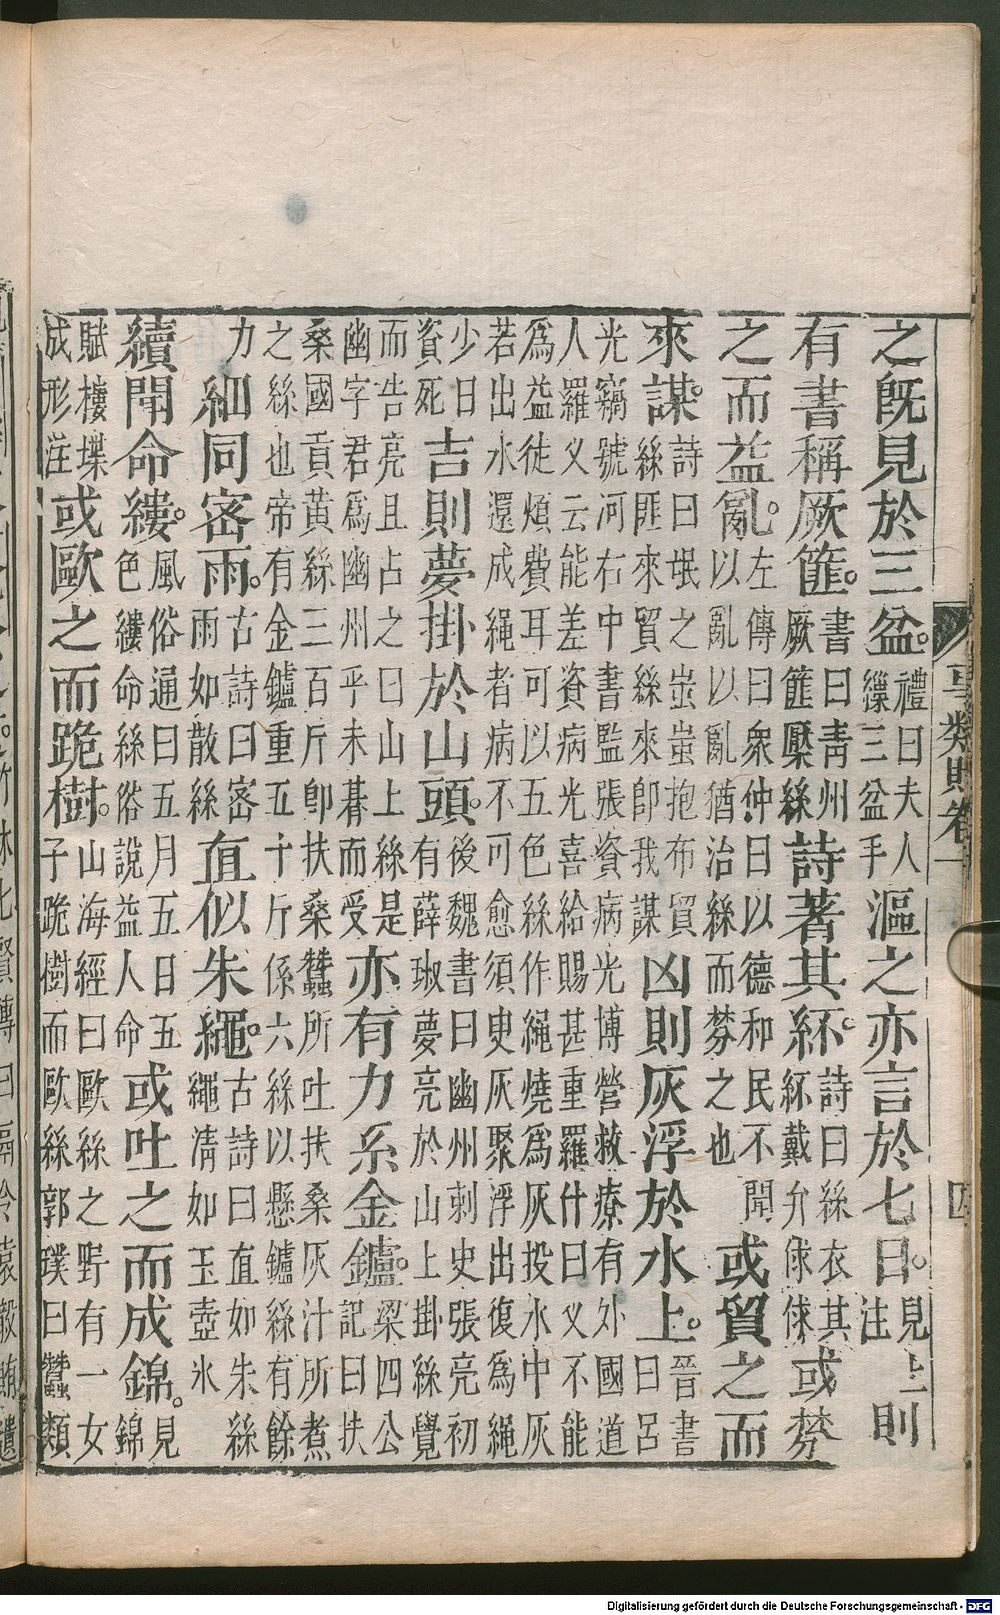 之既見於三盆。禮曰夫人繅三盆手漚之亦言於七日。見上注則
有書稱厥篚。書曰青州厥篚檿絲詩著其紑。詩曰絲衣其紑戴弁俅俅或棼
之而益亂。左傳曰衆仲曰以德和民不聞以亂以亂猶治絲而棼之也或貿之而
來謀。詩曰氓之蚩蚩抱布貿絲匪來貿絲來即我謀凶則灰浮於水上。晉書曰呂
光竊號河右中書監張資病光博營救療有外國道
人羅叉云能差資病光喜給賜甚重羅什曰叉不能
爲益徒煩費耳可以五色絲作繩燒爲灰投水中灰
若出水還成繩者病不可愈須史灰聚浮出復爲繩
少日資死吉則夢掛於山頭。後魏書曰幽州刺史張亮初有薛琡夢亮於山上掛絲覺
而告亮且占之曰山上絲是幽字君爲幽州乎未暮而受亦有力系金鑪。梁四公記曰扶
桑國貢黃絲三百斤即扶桑蠶所吐扶桑灰汁所煮
之絲也帝有金鑪重五十斤係六絲以懸鑪絲有餘
力細同密雨。古詩曰密雨如散絲直似朱繩。古詩曰直如朱絲繩清如玉壺氷
續聞命縷。風俗通曰五月五日五色縷命絲俗說益人命或吐之而成錦。見錦
賦樓堞成形注或歐之而跪樹。山海經曰歐絲之野有一女子跪樹而歐絲郭璞曰蠶類
Digitalisierung gefördert durch die Deutsche Forschungsgemeinschaft - DFG